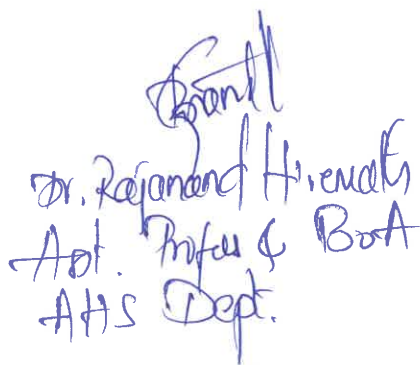 Dr. Rajanand Hiremath
Ast. Profes & BoA
AHS Dept.